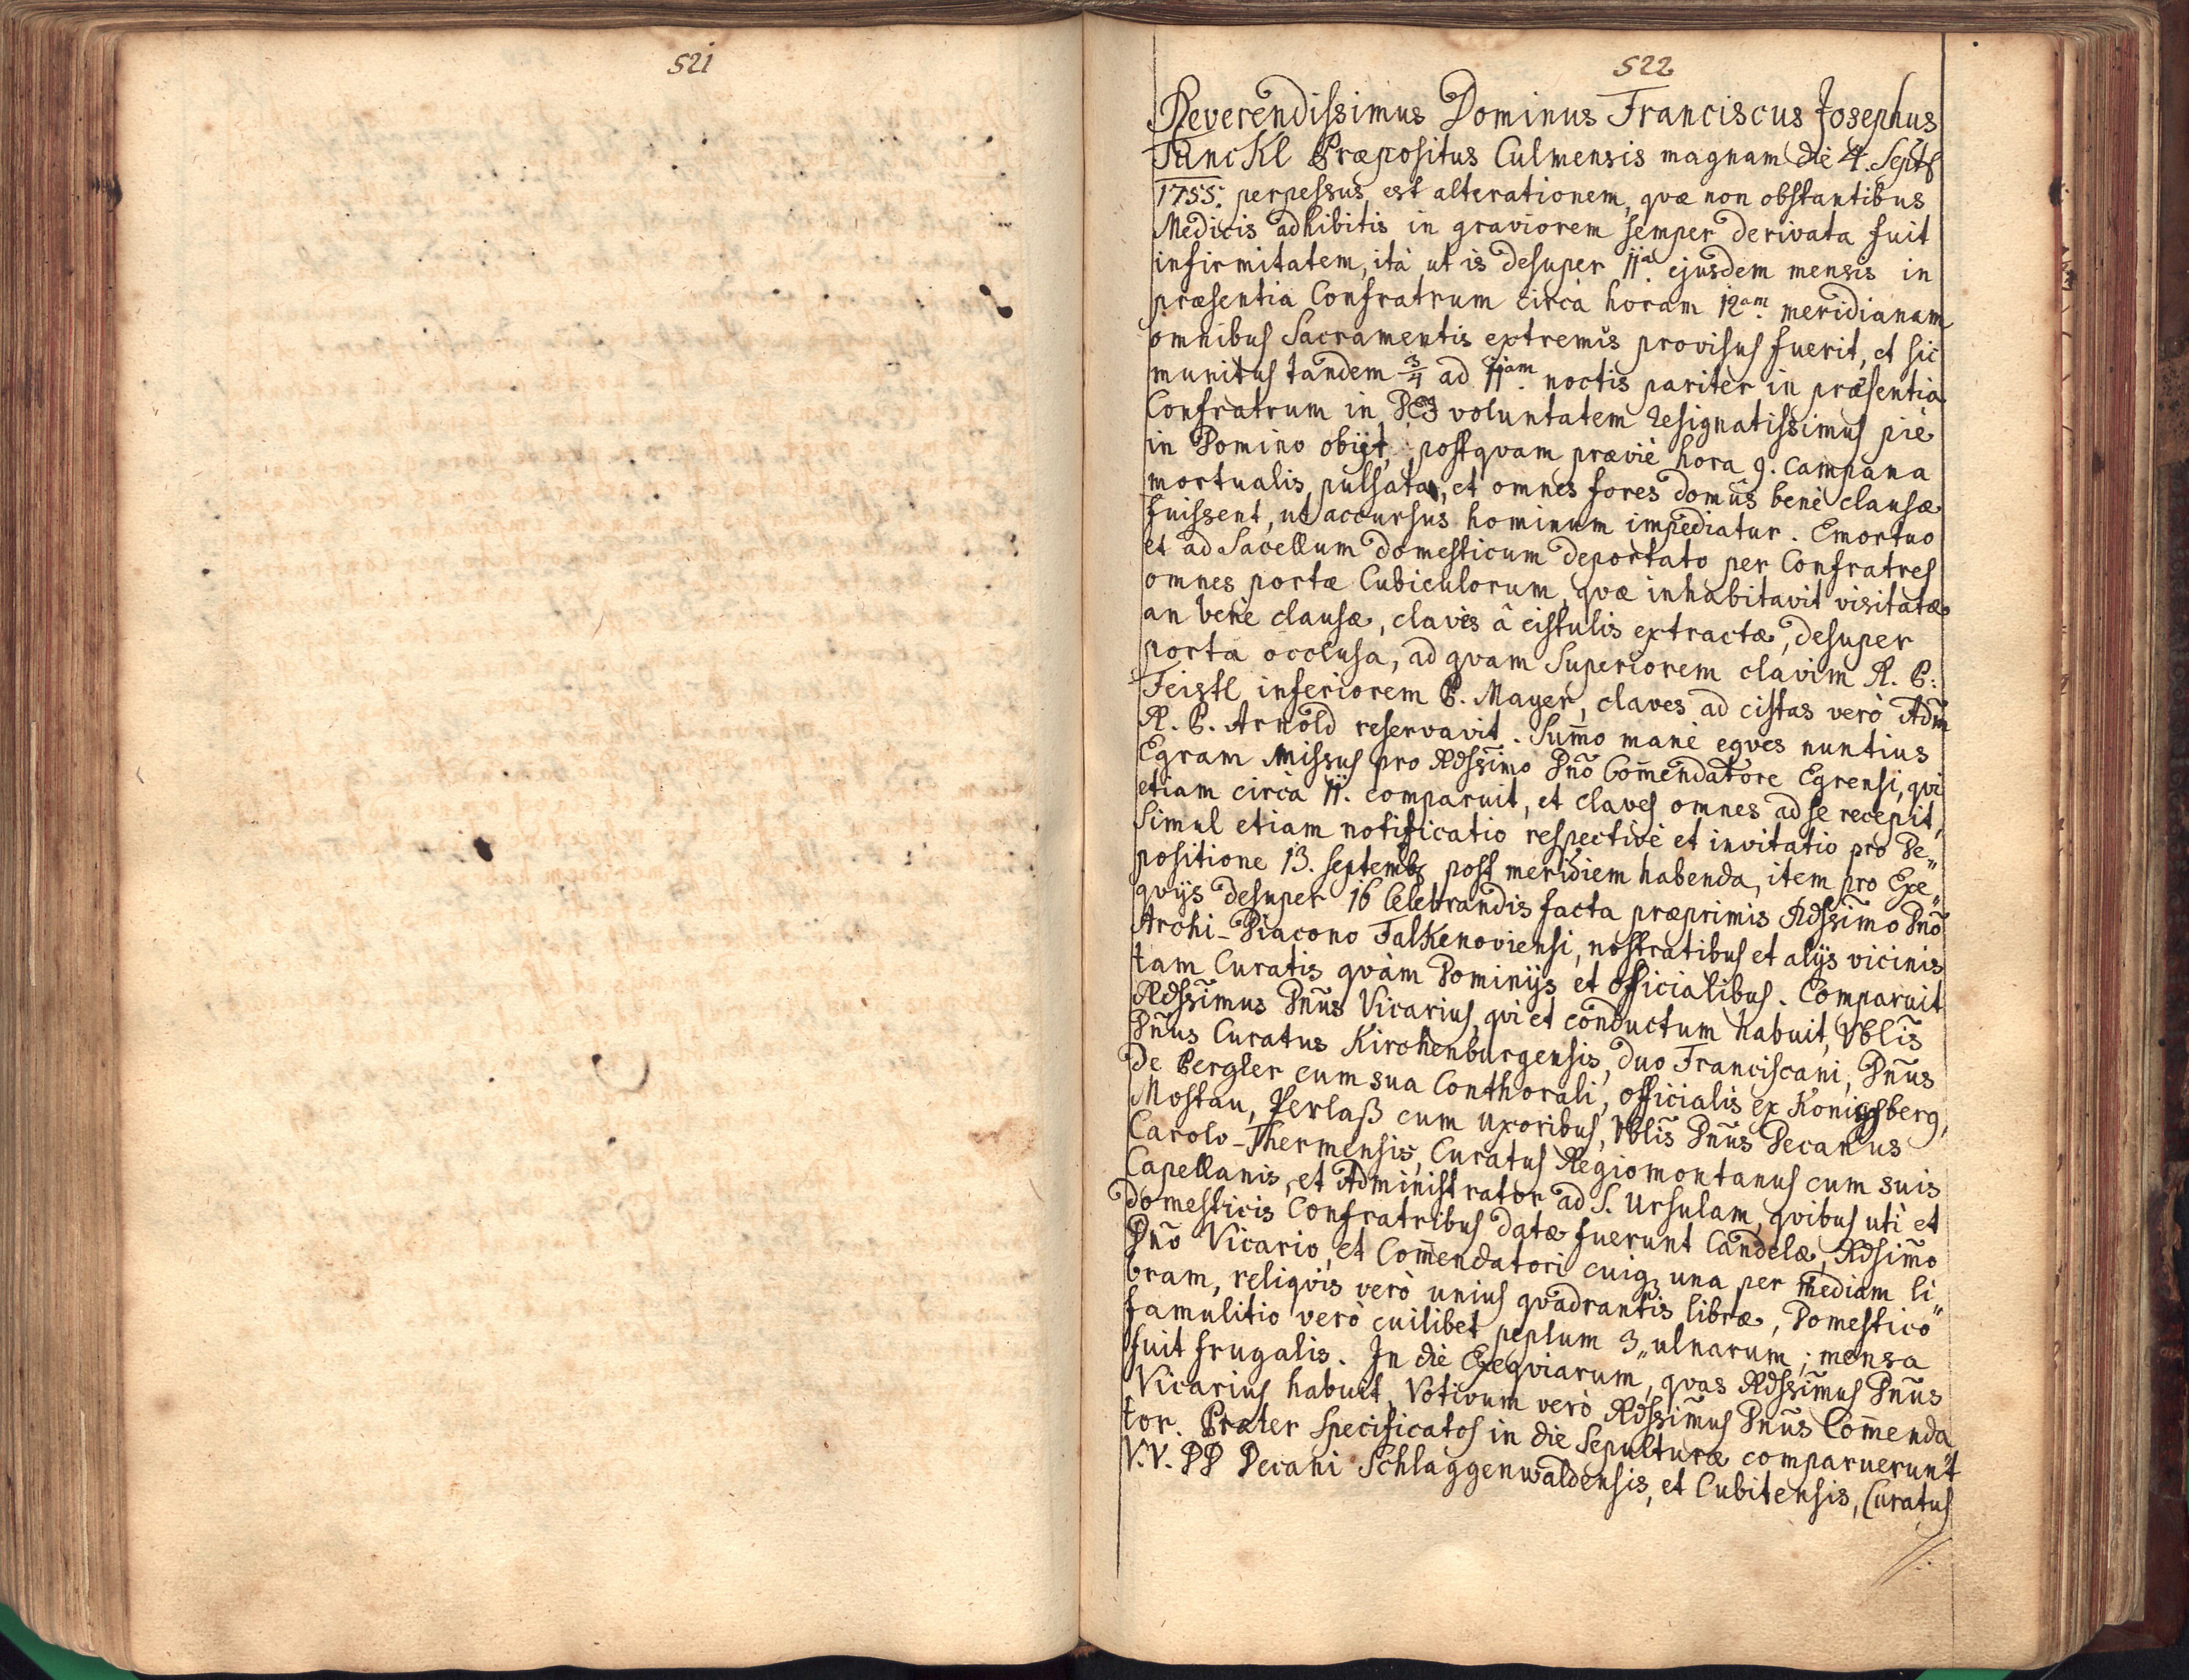 521
522
Reverendissimus Dominus Franciscus Josephus
Tünckl Præpositus Culmensis magnam die 4. Septb
1755: perpessus est alterationem, qvæ non obstantibus
Medicis adhibitis in graviorem semper derivata fuit
infirmitatem, ità ut is desuper 11a. ejusdem mensis in
præsentia Confratrum circà horam 12am. meridianam
omnibus Sacramentis extremis provisus fuerit, et sic
munitus tandem 3/4 ad 11am. noctis pariter in præsentia
Confratrum in voluntatem resignatissimus piè
in Domino obijt, postqvam præviè hora 9. campana
mortualis pulsata, et omnes fores domûs benè clausæ
fuissent, ut accursus hominum impediatur. Emortuo
et ad Sacellum domesticum deportato per Confratres
omnes portæ Cubiculorum, qvæ inhabitavit visitatæ
an benè clausæ, claves â cistulis extractæ, desuper
porta occlusa, ad qvam Superiorem clavim A. P:
Feistl inferiorem P. Mayer, claves ad cistas verò Adm̃
R. P. Arnold reservavit. Sum̄o manè eqves nuntius
Egram missus pro Rdssimo Dño Com̄endatore Egrensi, qvi
etiam circà 11. comparuit, et claves omnes ad se recepit,
Simul etiam notificatio respectivè et invitatio pro De„
positione 13. septemb post meridiem habenda, item pro Exe„
qvijs desuper 16 Celebrandis facta præprimis Rdssimo Dño
Archi-Diacono Falkenoviensi, nostratibus et alijs vicinis
tam Curatis qvàm Dominijs et officialibus. Comparuit
Rdssimus Dñus Vicarius, qvi et conductum habuit, Vblis
Dñus Curatus Kirchenburgensis, duo Franciscani, Dñus
De Pergler cum sua Conthorali, officialis ex Konigsberg,
Mostau, Perlaß cum uxoribus, Vblis Dñus Decanus
Carolo-Thermensis, Curatus Regiomontanus cum suis
Capellanis, et Administrator ad S. Ursulam, qvibus uti et
domesticis Confratribus datæ fuerunt Candelæ, Rdsimo
Dño Vicario, et Com̄endatori cuiq; una per mediam li„
bram, reliqvis verò unius qvadrantis libræ, Domestico
famulitio verò cuilibet peplum 3„ ulnarum; mensa
fuit frugalis. In die Exeqviarum, qvas Rdssimus Dñus
Vicarius habuit, Votivum verò Rdssimus Dñus Com̄enda„
tor. Præter specificatos in die Sepulturæ comparuerunt
V.V. DD Decani Schlaggenwaldensis, et Cubitensis, Curatus